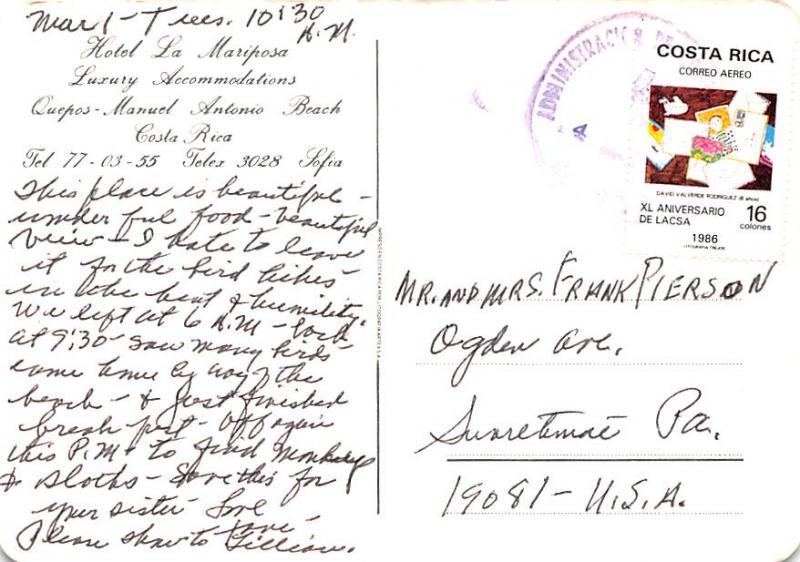 Mar 1 - Tues. 10:30
A.M.
Hotel La Mariposa
Luxury Accommodations
Quepos - Manuel Antonio Beach
Costa Rica
Tel 77-03-55 Telex 3028 Sofia
This place is beautiful -
wonderful food - beautiful
view - I hate to leave
it for the bird hikes
in the heat & humidity.
We left at 6 A.M - back
at 9:30 - saw many birds
came home by way of the
beach - & just finished
breakfast - Off again
this P.M. to find monkeys
& sloths - Save this for
your sister Love
Jane -
Please show to Gillian.
ADMINISTRACION DE
4
COSTA RICA
CORREO AEREO
DAVID VALVERDE RODRIGUEZ (8 años)
XL ANIVERSARIO
DE LACSA
16
colones
1986
LITOGRAFIA TREJOS
MR. AND MRS. FRANK PIERSON
Ogden Ave.
Swarthmore Pa.
19081 - U.S.A.